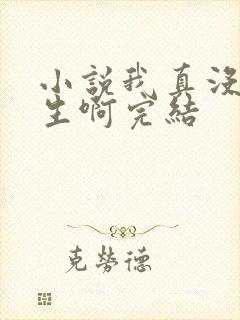 小説我真没
生啊完結
克勞德